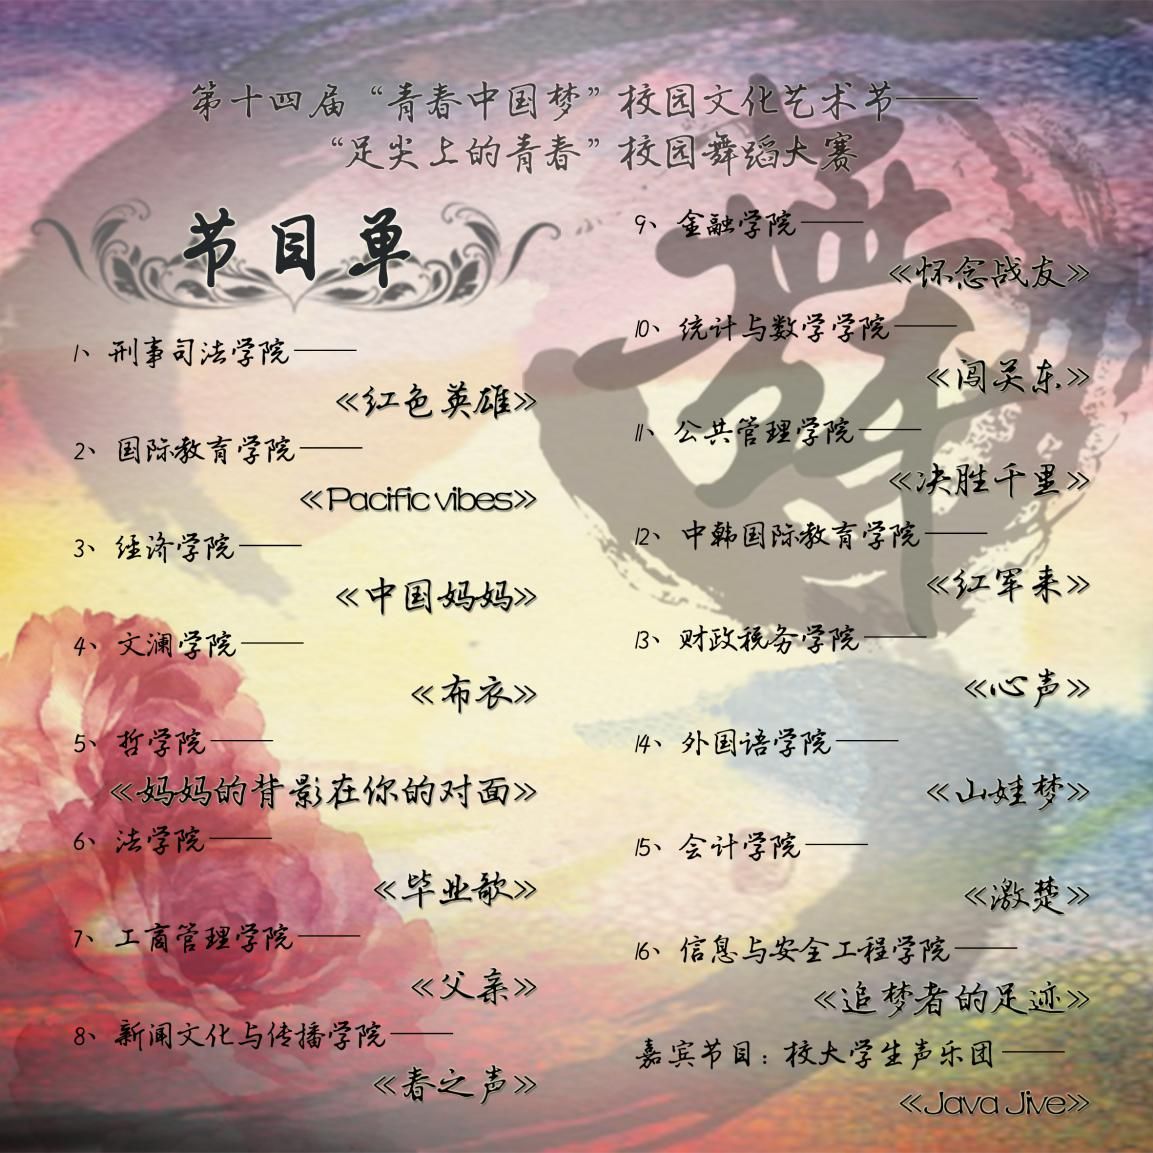 第十四届“青春中国梦”校园文化艺术节——
“足尖上的青春”校园舞蹈大赛
节目单
1、刑事司法学院——
《红色英雄》
2、国际教育学院——
《Pacific vibes》
3、经济学院——
《中国妈妈》
4、文澜学院——
《布衣》
5、哲学院——
《妈妈的背影在你的对面》
6、法学院——
《毕业歌》
7、工商管理学院——
《父亲》
8、新闻文化与传播学院——
《春之声》
9、金融学院——
《怀念战友》
10、统计与数学学院——
《闯关东》
11、公共管理学院——
《决胜千里》
12、中韩国际教育学院——
《红军来》
13、财政税务学院——
《心声》
14、外国语学院——
《山娃梦》
15、会计学院——
《激楚》
16、信息与安全工程学院——
《追梦者的足迹》
嘉宾节目：校大学生声乐团——
《Java Jive》
舞